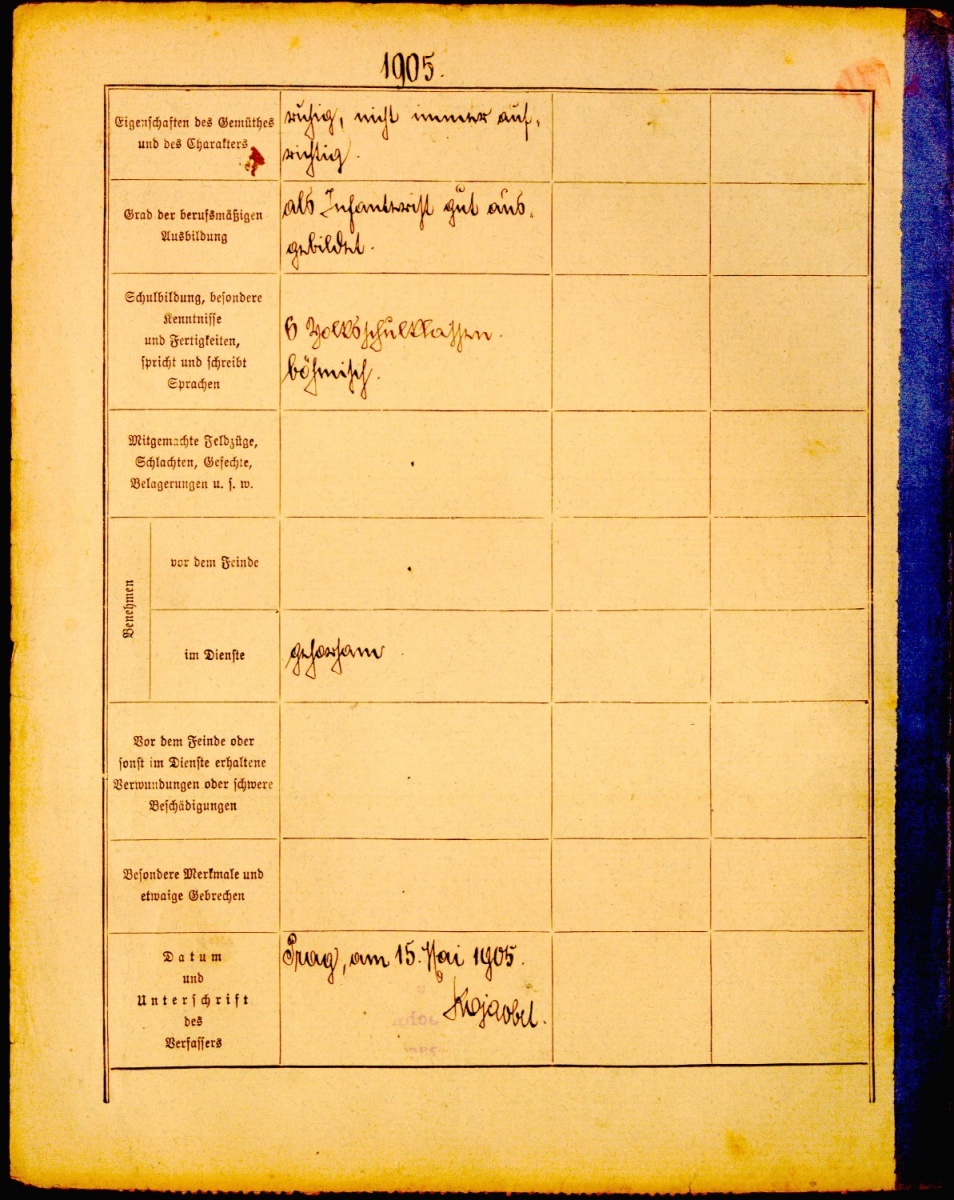 1905.
Eigenschaften des Gemüthes
und des Charakters
ruhig, nicht immer auf-
richtig.
Grad der berufsmäßigen
Ausbildung
als Infanterist gut aus-
gebildet.
Schulbildung, besondere
Kenntnisse
und Fertigkeiten,
spricht und schreibt
Sprachen
6 Volksschulklassen.
böhmisch.
Mitgemachte Feldzüge,
Schlachten, Gefechte,
Belagerungen u. s. w.
Benehmen
vor dem Feinde
im Dienste
gehorsam
Vor dem Feinde oder
sonst im Dienste erhaltene
Verwundungen oder schwere
Beschädigungen
Besondere Merkmale und
etwaige Gebrechen
Datum
und
Unterschrift
des
Verfassers
Prag, am 15. Mai 1905.